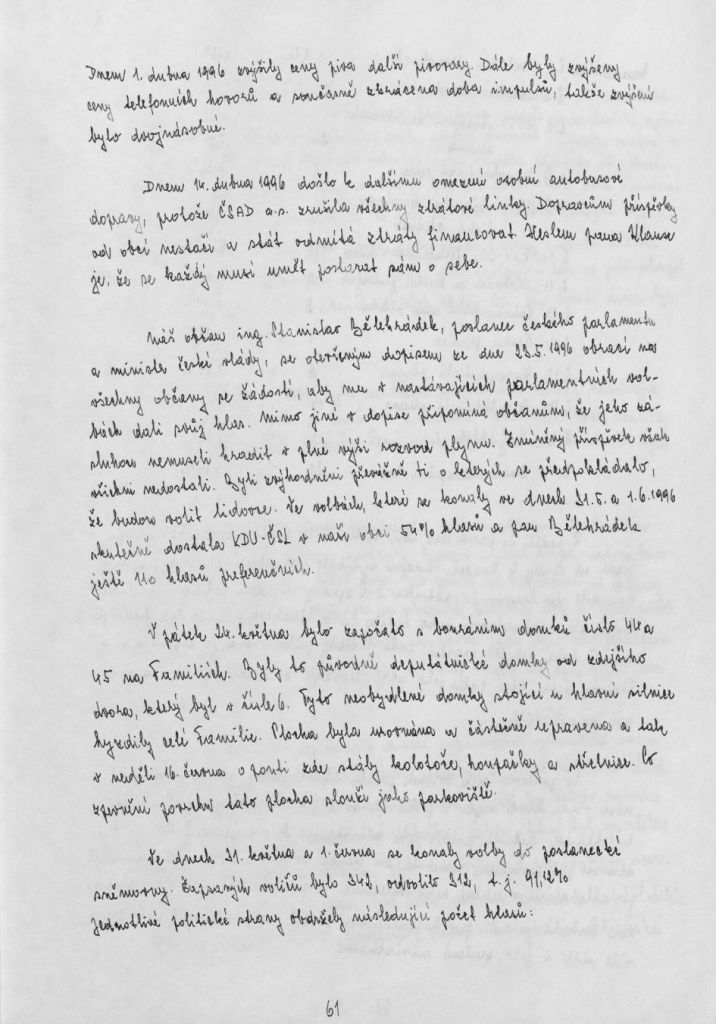 Dnem 1. dubna 1996 zvýšily ceny piva další pivovary. Dále byly zvýšeny
ceny telefonních hovorů a současně zkrácena doba impulsů, takže zvýšení
bylo dvojnásobné.
Dnem 14. dubna 1996 došlo k dalšímu omezení osobní autobusové
dopravy, protože ČSAD a.s. zrušila všechny ztrátové linky. Dopravcům příspěvky
od obcí nestačí a stát odmítá ztráty financovat. Heslem pana Klause
je, že se každý musí umět postarat sám o sebe.
Náš občan ing. Stanislav Bělehrádek, poslanec českého parlamentu
a ministr české vlády, se otevřeným dopisem ze dne 23.5.1996 obrací na
všechny občany se žádostí, aby mu v nastávajících parlamentních vol-
bách dali svůj hlas. Mimo jiné v dopise připomíná občanům, že jeho zá-
sluhou nemuseli hradit v plné výši rozvod plynu. Zmíněný příspěvek však
všichni nedostali. Byli zvýhodněni převážně ti o kterých se předpokládalo,
že budou volit lidovce. Ve volbách, které se konaly ve dnech 31.5. a 1.6.1996
skutečně dostala KDU-ČSL v naší obci 54% hlasů a pan Bělehrádek
ještě 110 hlasů preferenčních.
V pátek 24. května bylo započato s bouráním domků číslo 44 a
45 na Familiích. Byly to původně deputátnické domky od zdejšího
dvora, který byl v čísle 6. Tyto neobydlené domky stojící u hlavní silnice
hyzdily celé Familie. Plocha byla urovnána a částečně upravena a tak
v neděli 16. června o pouti zde stály kolotoče, houpačky a střelnice. Po
zpevnění povrchu tato plocha slouží jako parkoviště.
Ve dnech 31. května a 1. června se konaly volby do poslanecké
sněmovny. Zapsaných voličů bylo 342, odvolilo 312, t.j. 91,12%
Jednotlivé politické strany obdržely následující počet hlasů:
61